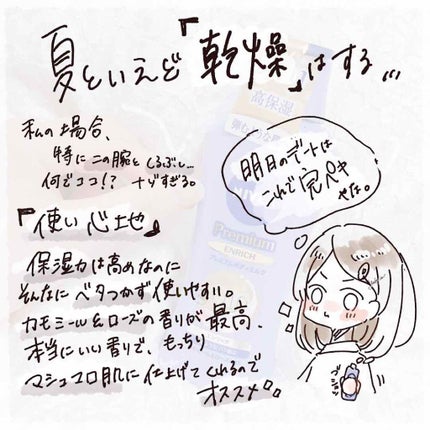 夏といえど「乾燥」はする...
私の場合、
特に二の腕とくるぶし...
何でココ!? ナゾすぎる。
明日のデートは
これで完ペキ
やな。
『使い心地』
保湿力は高めなのに
そんなにベタつかず使いやすい。
カモミール&ローズの香りが最高、
本当にいい香りで、もっちり
マシュマロ肌に仕上げてくれるので
オススメ
高保湿
Premium
ENRICH
プレミアムボディミルク